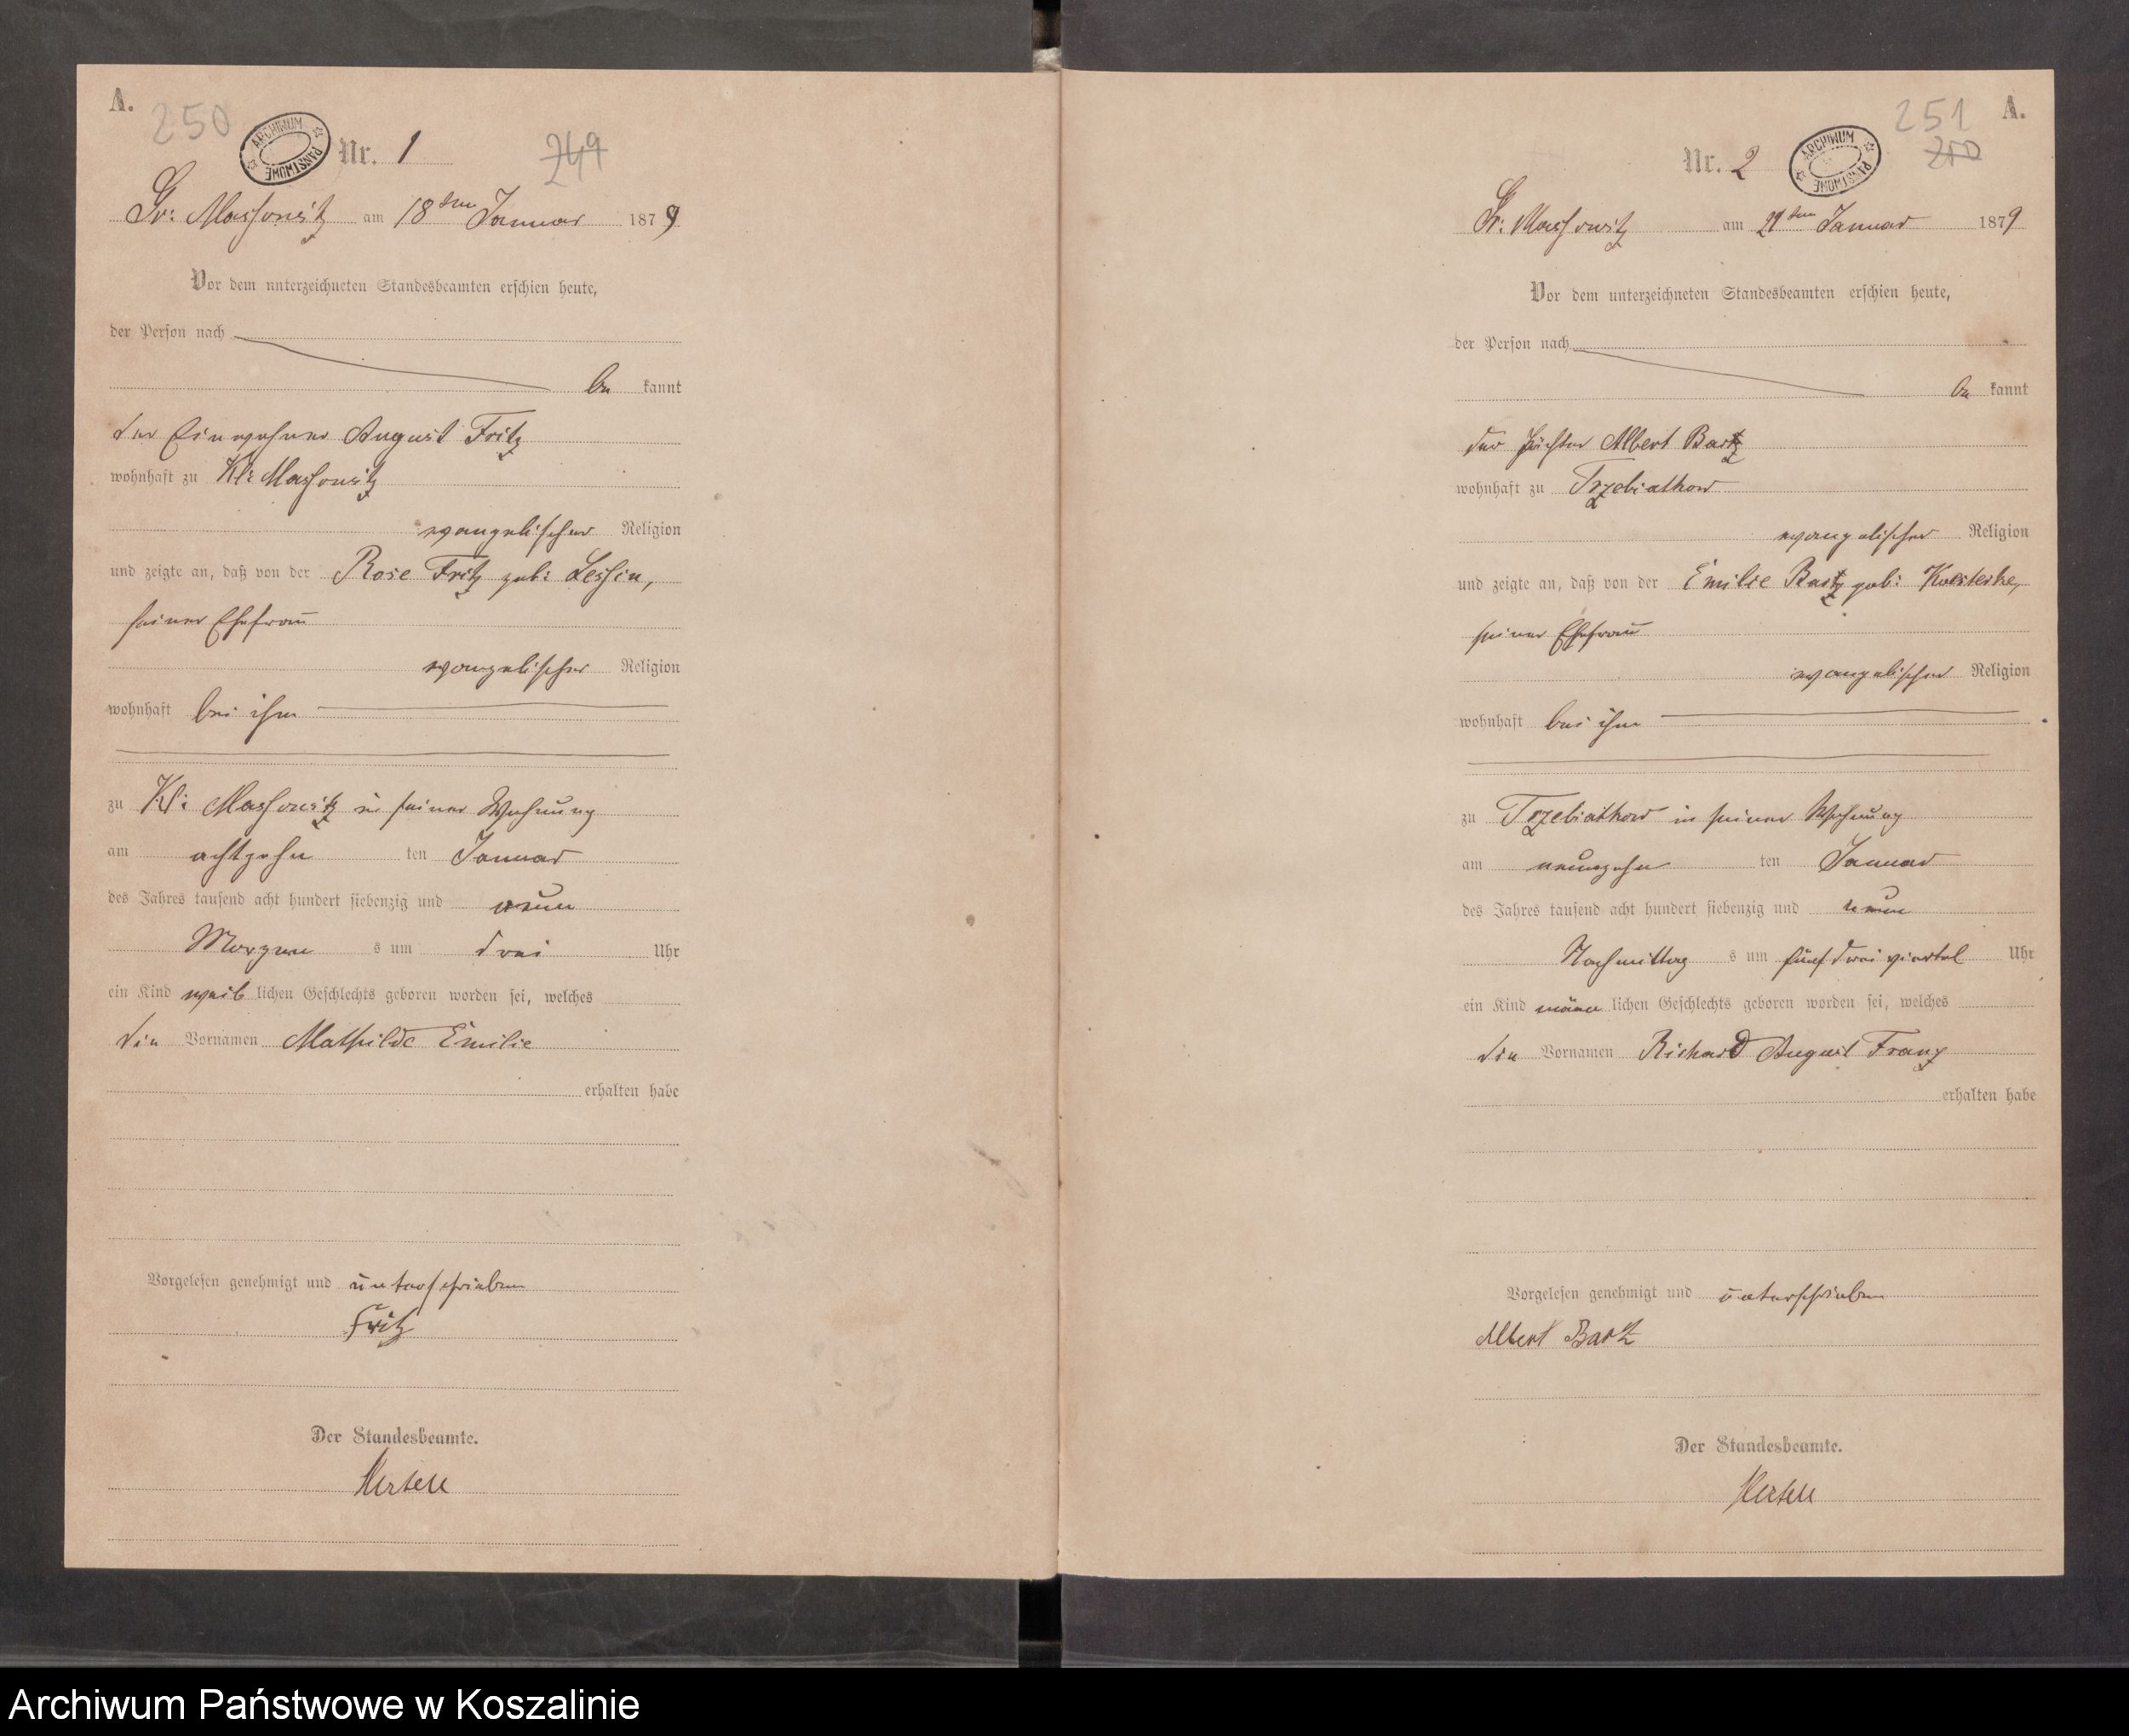 A.
250
ARCHIWUM PAŃSTWOWE
Nr. 1
249
Gr: Massowitz am 18ten Januar 1879
Vor dem unterzeichneten Standesbeamten erschien heute,
der Person nach
be kannt
der Einwohner August Fritz
wohnhaft zu Kl: Massowitz
evangelischer Religion
und zeigte an, daß von der Rose Fritz geb: Lessin,
seiner Ehefrau
evangelischer Religion
wohnhaft bei ihm
zu Kl: Massowitz in seiner Wohnung
am achtzehn ten Januar
des Jahres tausend acht hundert siebenzig und neun
Morgen s um drei Uhr
ein Kind weib lichen Geschlechts geboren worden sei, welches
die Vornamen Mathilde Emilie
erhalten habe
Vorgelesen genehmigt und unterschrieben
Fritz
Der Standesbeamte.
Hertell
251
A.
250
Nr. 2
ARCHIWUM PAŃSTWOWE
Gr: Massowitz am 21ten Januar 1879
Vor dem unterzeichneten Standesbeamten erschien heute,
der Person nach
be kannt
der Pächter Albert Bartz
wohnhaft zu Trzebiatkow
evangelischer Religion
und zeigte an, daß von der Emilie Bartz geb:
seiner Ehefrau
evangelischer Religion
wohnhaft bei ihm
zu Trzebiatkow in seiner Wohnung
am neunzehn ten Januar
des Jahres tausend acht hundert siebenzig und neun
Nachmittag s um fünf drei viertel Uhr
ein Kind männ lichen Geschlechts geboren worden sei, welches
die Vornamen Richard August Franz
erhalten habe
Vorgelesen genehmigt und unterschrieben
Albert Bartz
Der Standesbeamte.
Hertell
Archiwum Państwowe w Koszalinie